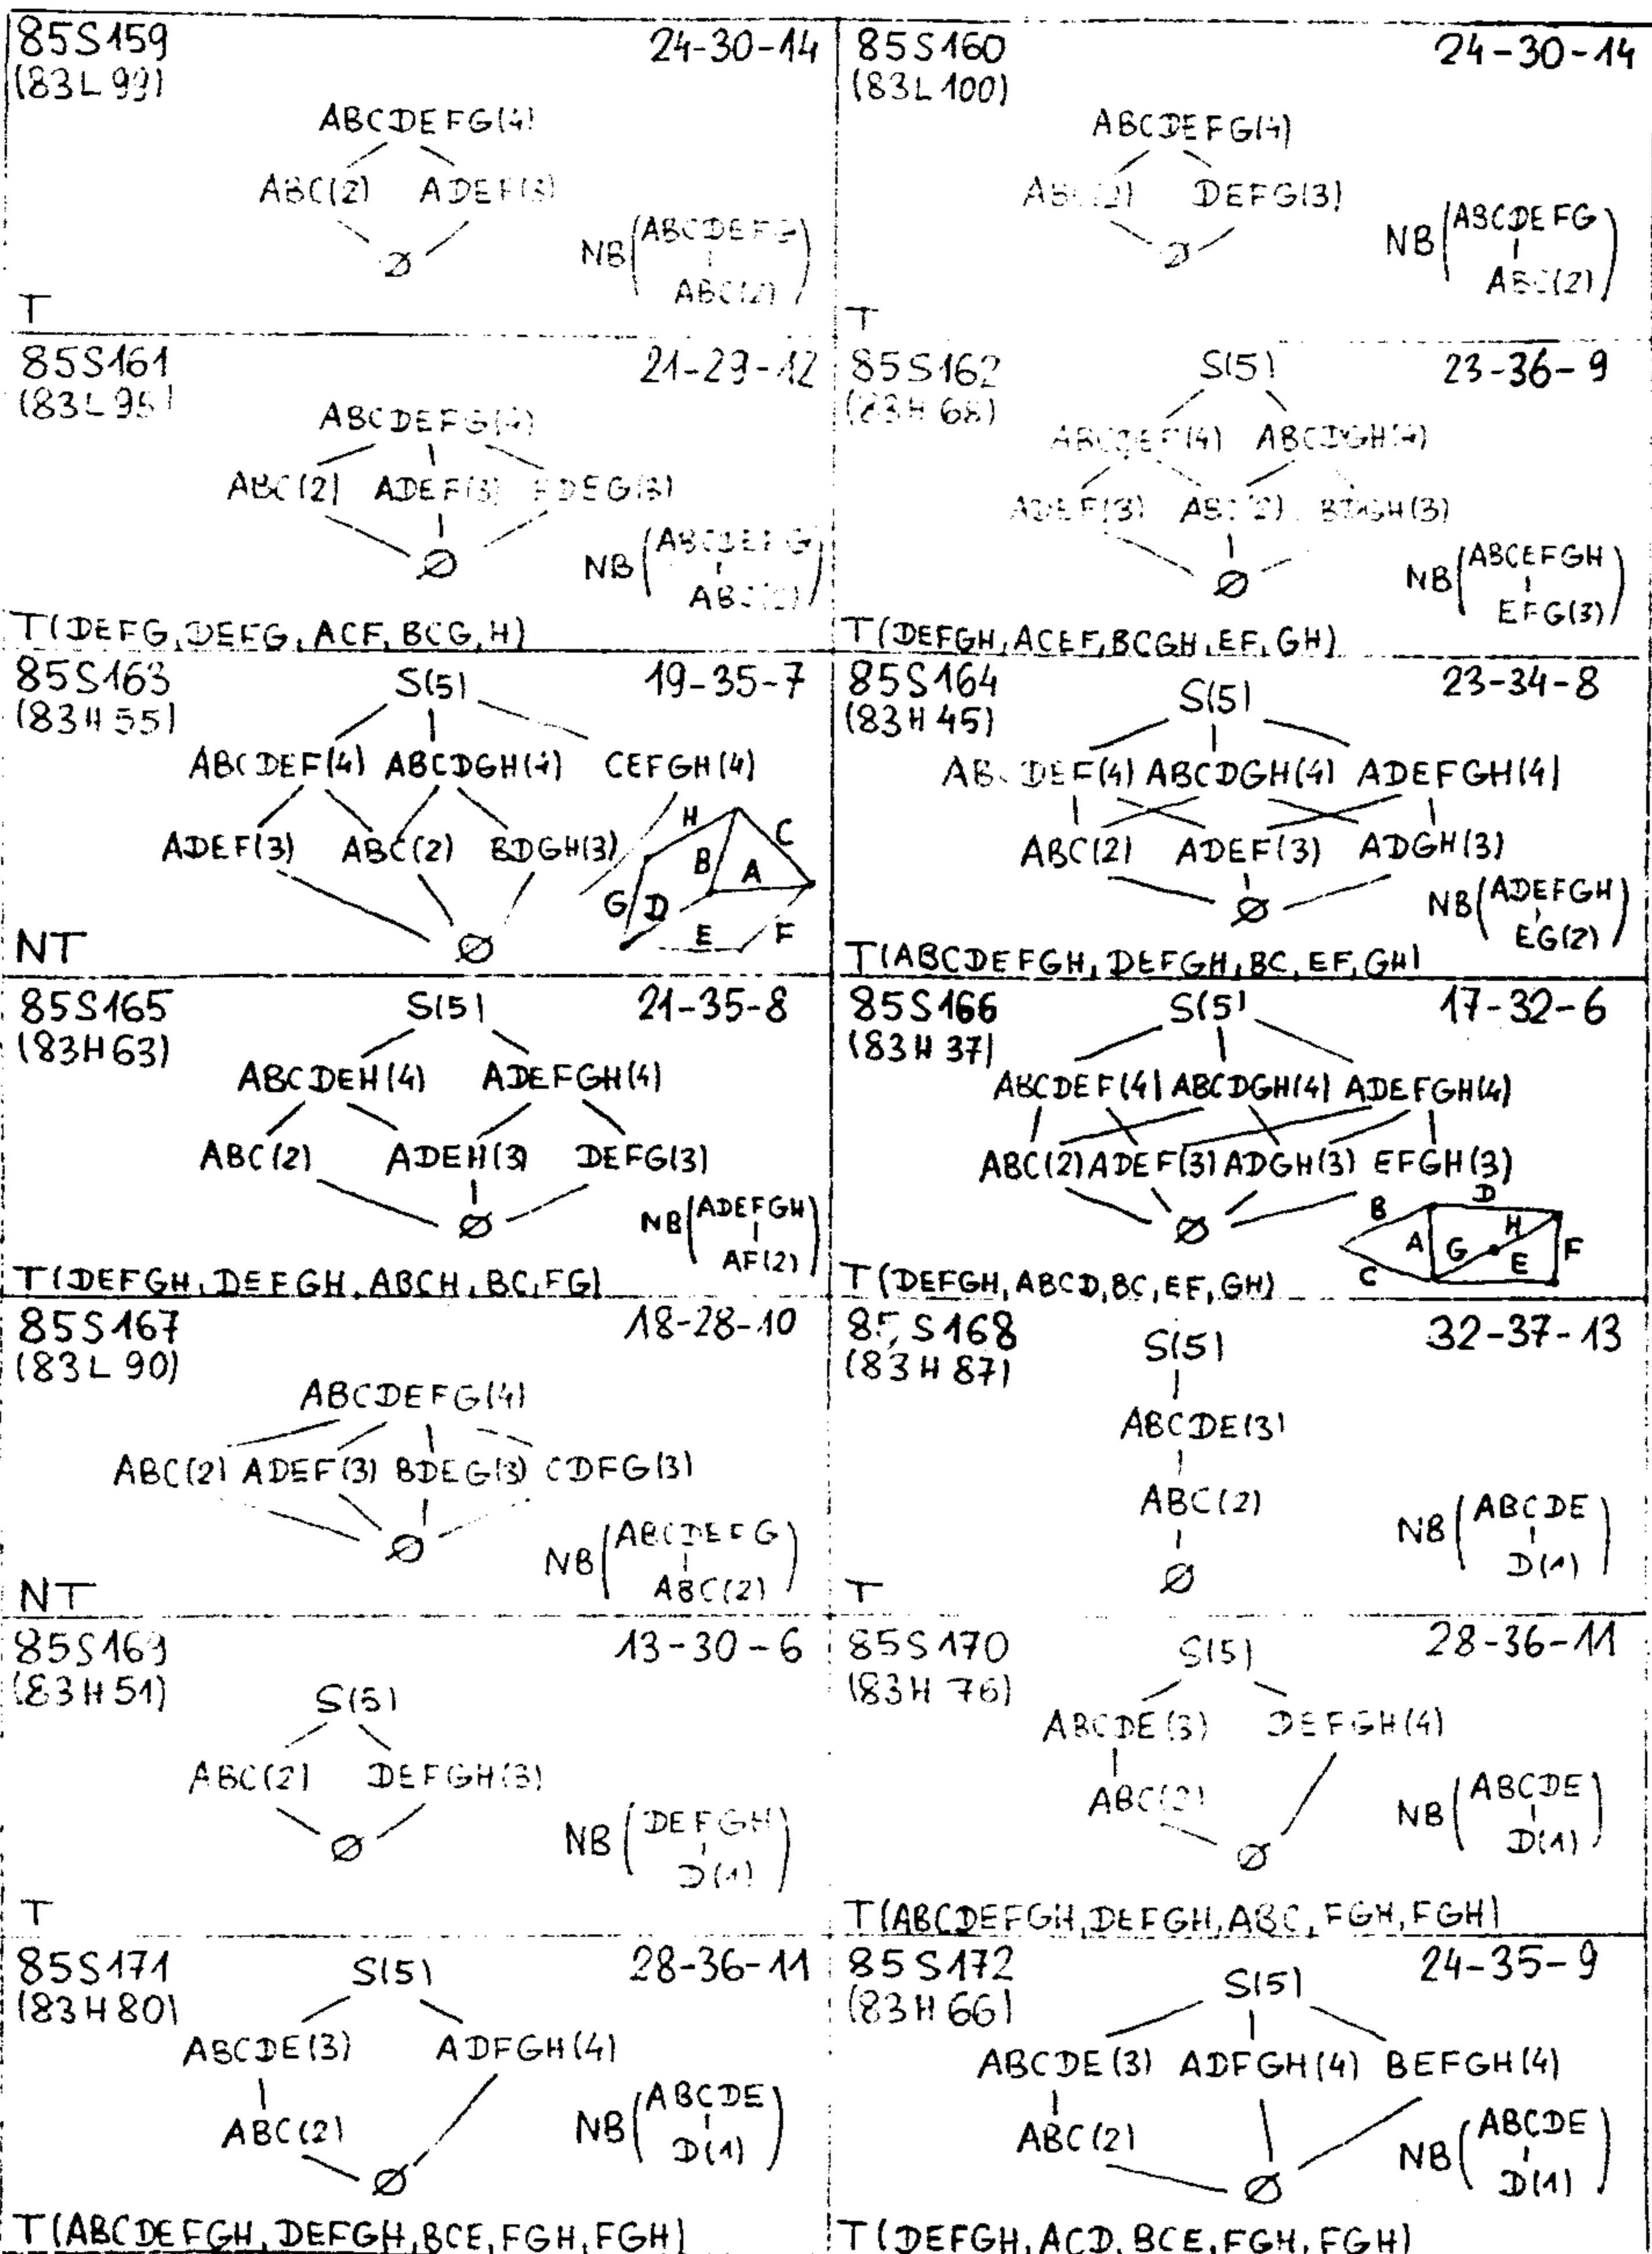 85S159 24-30-14
(83L99)
ABCDEFG(4)
ABC(2) ADEF(3)
∅
NB(ABCDEFG
ABC(2))
T
85S160 24-30-14
(83L100)
ABCDEFG(4)
ABC(2) DEFG(3)
∅
NB(ABCDEFG
ABC(2))
T
85S161 21-29-12
(83L95)
ABCDEFG(4)
ABC(2) ADEF(3) BDEG(3)
∅
NB(ABCDEFG
ABC(2))
T(DEFG,DEFG,ACF,BCG,H)
85S162 23-36-9
(83H68)
S(5)
ABCDEF(4) ABCDGH(4)
ADEF(3) ABC(2) BDGH(3)
∅
NB(ABCEFGH
EFG(3))
T(DEFGH,ACEF,BCGH,EF,GH)
85S163 19-35-7
(83H55)
S(5)
ABCDEF(4) ABCDGH(4) CEFGH(4)
ADEF(3) ABC(2) BDGH(3)
∅
H
C
B A
G D
E F
NT
85S164 23-34-8
(83H45)
S(5)
ABCDEF(4) ABCDGH(4) ADEFGH(4)
ABC(2) ADEF(3) ADGH(3)
∅
NB(ADEFGH
EG(2))
T(ABCDEFGH,DEFGH,BC,EF,GH)
85S165 21-35-8
(83H63)
S(5)
ABCDEH(4) ADEFGH(4)
ABC(2) ADEH(3) DEFG(3)
∅
NB(ADEFGH
AF(2))
T(DEFGH,DEFGH,ABCH,BC,FG)
85S166 17-32-6
(83H37)
S(5)
ABCDEF(4) ABCDGH(4) ADEFGH(4)
ABC(2) ADEF(3) ADGH(3) EFGH(3)
∅
B D
A G H F
C E
T(DEFGH,ABCD,BC,EF,GH)
85S167 18-28-10
(83L90)
ABCDEFG(4)
ABC(2) ADEF(3) BDEG(3) CDFG(3)
∅
NB(ABCDEFG
ABC(2))
NT
85S168 32-37-13
(83H87)
S(5)
ABCDE(3)
ABC(2)
∅
NB(ABCDE
D(1))
T
85S169 13-30-6
(83H51)
S(5)
ABC(2) DEFGH(3)
∅
NB(DEFGH
D(1))
T
85S170 28-36-11
(83H76)
S(5)
ABCDE(3) DEFGH(4)
ABC(2)
∅
NB(ABCDE
D(1))
T(ABCDEFGH,DEFGH,ABC,FGH,FGH)
85S171 28-36-11
(83H80)
S(5)
ABCDE(3) ADFGH(4)
ABC(2)
∅
NB(ABCDE
D(1))
T(ABCDEFGH,DEFGH,BCE,FGH,FGH)
85S172 24-35-9
(83H66)
S(5)
ABCDE(3) ADFGH(4) BEFGH(4)
ABC(2)
∅
NB(ABCDE
D(1))
T(DEFGH,ACD,BCE,FGH,FGH)